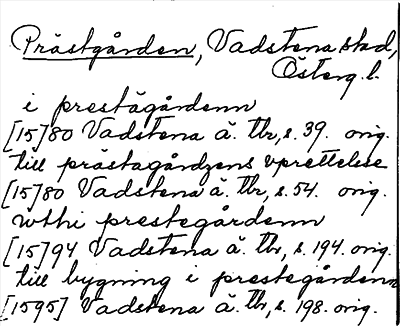 Prästgården, Vadstena stad,
Österg. l.
i prestägårdenn
[15]80 Vadstena ä. tbr, s. 39. orig.
till prästagårdzens vprettelse
[15]80 Vadstena ä. tbr, s. 54. orig.
wthi prestegårdenn
[15]94 Vadstena ä. tbr, s. 194. orig.
till bygning i prestegårdenn
[1595] Vadstena ä. tbr, s. 198. orig.